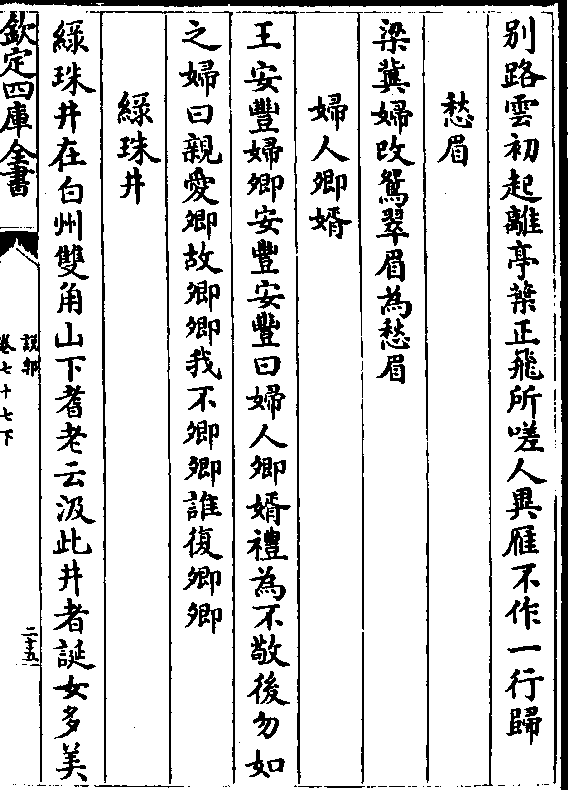 别路雲初起離亭葉正飛所嗟人異雁不作一行歸
愁眉
梁冀婦改鴛翠眉為愁眉
婦人卿婿
王安豐婦卿安豐安豐曰婦人卿婿禮為不敬後勿如
之婦曰親愛卿故卿卿我不卿卿誰復卿卿
緑珠井
緑珠井在白州雙角山下耆老云汲此井者誕女多美
欽定四庫全書
說郛
卷七十七下
二十五